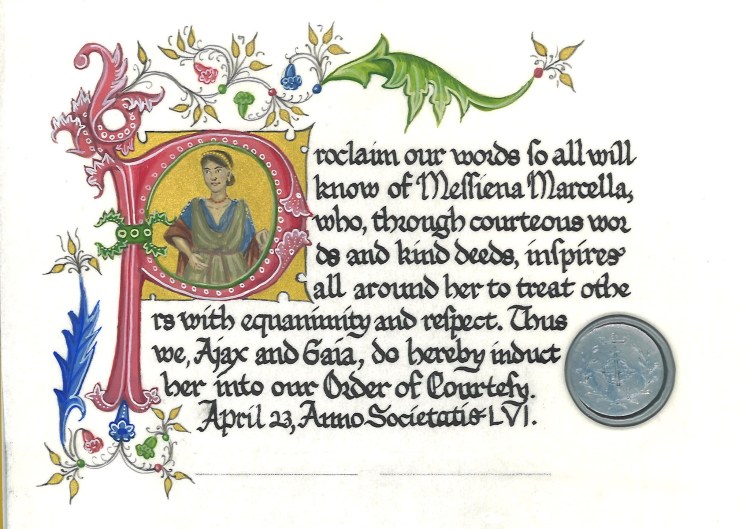 Proclaim our words ſo all will
know of Meſſiena Marcella,
who, through courteous wor
ds and kind deeds, inſpires
all around her to treat othe
rs with equanimity and reſpect. Thus
we, Ajax and Gaia, do hereby induct
her into our Order of Courteſy.
April 23, Anno Societatis LVI.